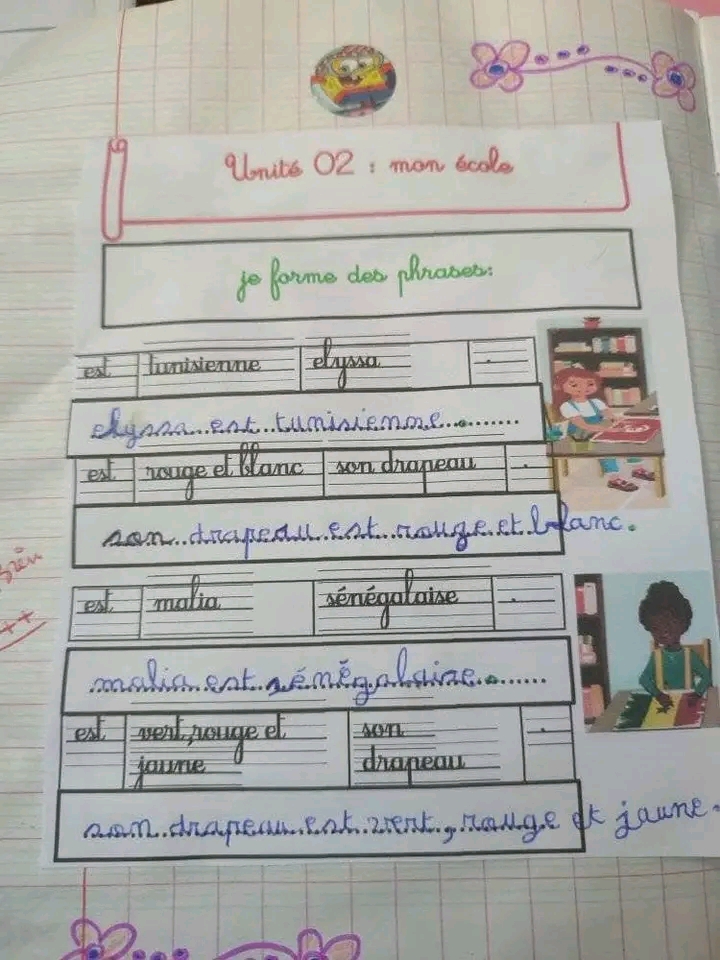 Unité 02 : mon école
je forme des phrases:
est tunisienne elyssa .
elyssa est tunisienne.
est rouge et blanc son drapeau .
son drapeau est rouge et blanc.
est malia sénégalaise .
malia est sénégalaise.
est vert, rouge et jaune son drapeau .
son drapeau est vert, rouge et jaune.
++